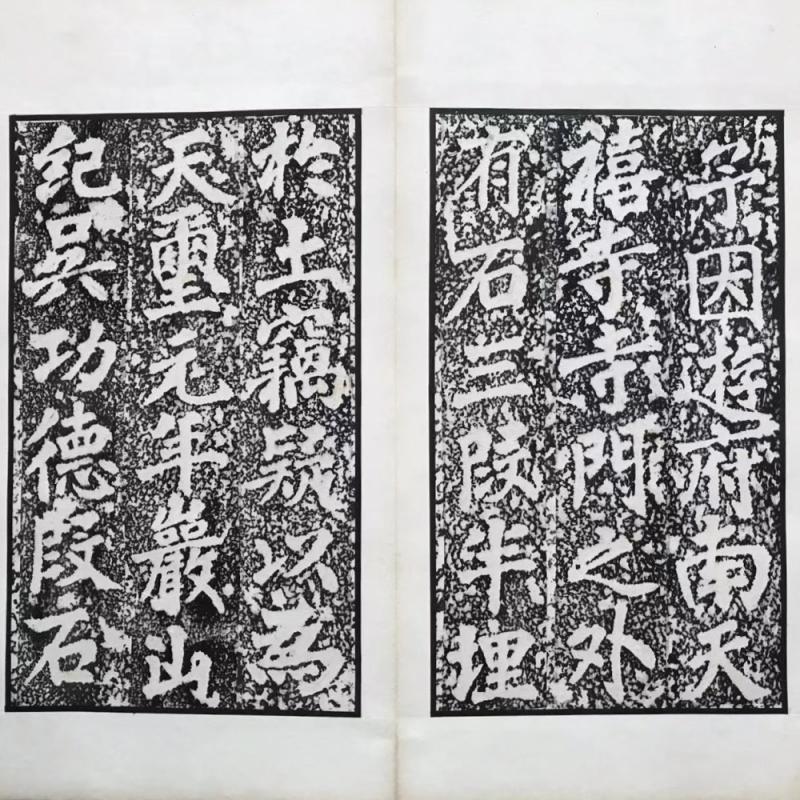 予因遊府南天
禧寺寺門之外
有石三段半埋
於土竊疑以為
天璽元年巖山
紀吳功德段石